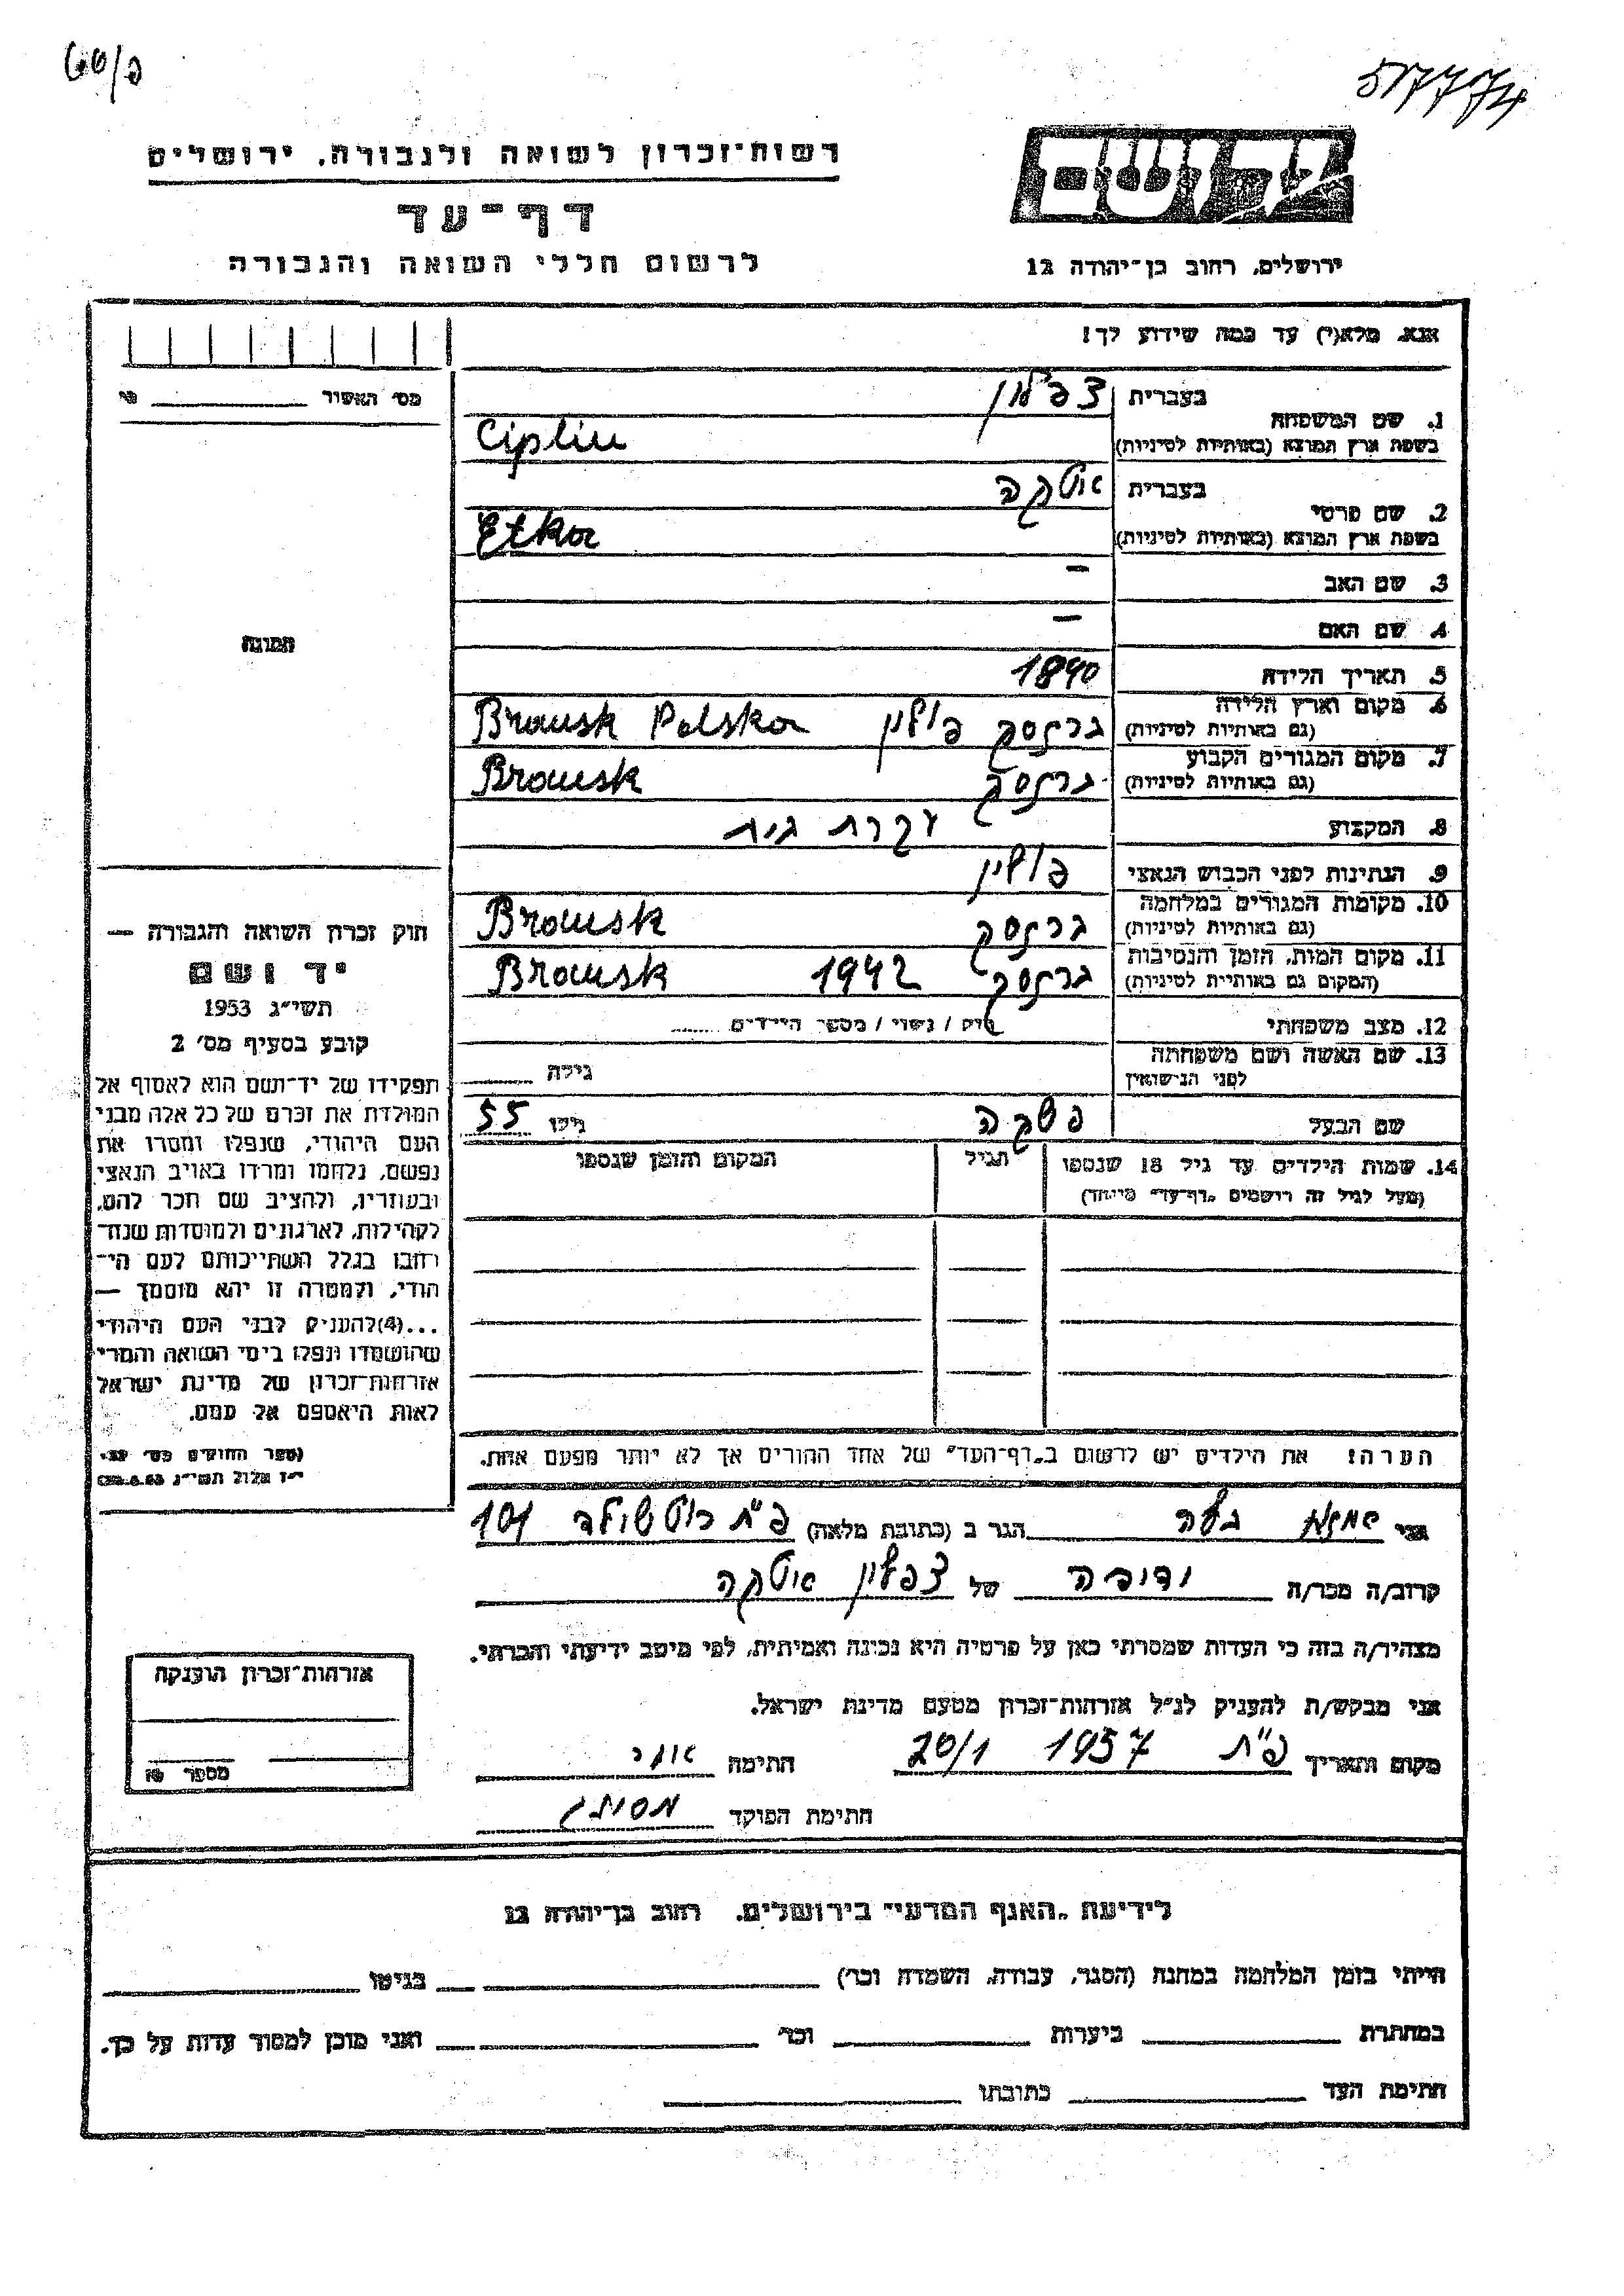 פ/60
517774
רשות־זכרון לשואה ולגבורה, ירושלים
דף־עד
לרשום חללי השואה והגבורה
ירושלים, רחוב בן־יהודה 12
אנא, מלא(י) עד כמה שידוע לך!
מס׳ האשור
1. שם המשפחה
בעברית
בשפת ארץ המוצא (באותיות לטיניות)
Cipliu
2. שם פרטי
בעברית איטקה
בשפת ארץ המוצא (באותיות לטיניות) Etka
3. שם האב —
4. שם האם —
5. תאריך הלידה 1890
6. מקום וארץ הלידה
(גם באותיות לטיניות) פולין Brausk Polska
7. מקום המגורים הקבוע
(גם באותיות לטיניות) Brausk
8. המקצוע עקרת בית
9. הנתינות לפני הכבוש הנאצי פולין
10. מקומות המגורים במלחמה
(גם באותיות לטיניות) Brausk
11. מקום המות, הזמן והנסיבות
(המקום גם באותיות לטיניות) 1942 Brausk
12. מצב משפחתי רוק / נשוי / מספר הילדים
13. שם האשה ושם משפחתה
לפני הנישואין גילה
שם הבעל גילו 55
14. שמות הילדים עד גיל 18 שנספו הגיל המקום והזמן שנספו
(מעל לגיל זה רושמים „דף־עד״ מיוחד)
הערה! את הילדים יש לרשום ב„דף־העד״ של אחד ההורים אך לא יותר מפעם אחת.
תמונה
חוק זכרון השואה והגבורה —
יד ושם
תשי״ג 1953
קובע בסעיף מס׳ 2
תפקידו של יד־ושם הוא לאסוף אל
המולדת את זכרם של כל אלה מבני
העם היהודי, שנפלו ומסרו את
נפשם, נלחמו ומרדו באויב הנאצי
ובעוזריו, ולהציב שם וזכר להם,
לקהילות, לארגונים ולמוסדות שנח־
רחבו בגלל השתייכותם לעם הי־
הודי, ולמטרה זו יהא מוסמך —
...(4)להעניק לבני העם היהודי
שהושמדו ונפלו בימי השואה והמרי
אזרחות־זכרון של מדינת ישראל
לאות היאספם אל עמם.
(ספר החוקים מס׳
י״ז אלול תשי״ג
אני הגר ב (כתובת מלאה) פ״ת רוטשילד 101
קרוב/ה מכר/ה ידידה של ציפלין איטקה
מצהיר/ה בזה כי העדות שמסרתי כאן על פרטיה היא נכונה ואמיתית, לפי מיטב ידיעתי והכרתי.
אני מבקש/ת להעניק לנ״ל אזרחות־זכרון מטעם מדינת ישראל.
מקום ותאריך פ״ת 1957 20/1 חתימה
חתימת הפוקד
אזרחות־זכרון הוענקה
מספר
לידיעת „האגף המדעי״ בירושלים, רחוב בן־יהודה 12
הייתי בזמן המלחמה במחנה (הסגר, עבודה, השמדה וכר׳) בגיטו
במחתרת ביערות וכר׳ ואני מוכן למסור עדות על כך.
חתימת העד כתובתו